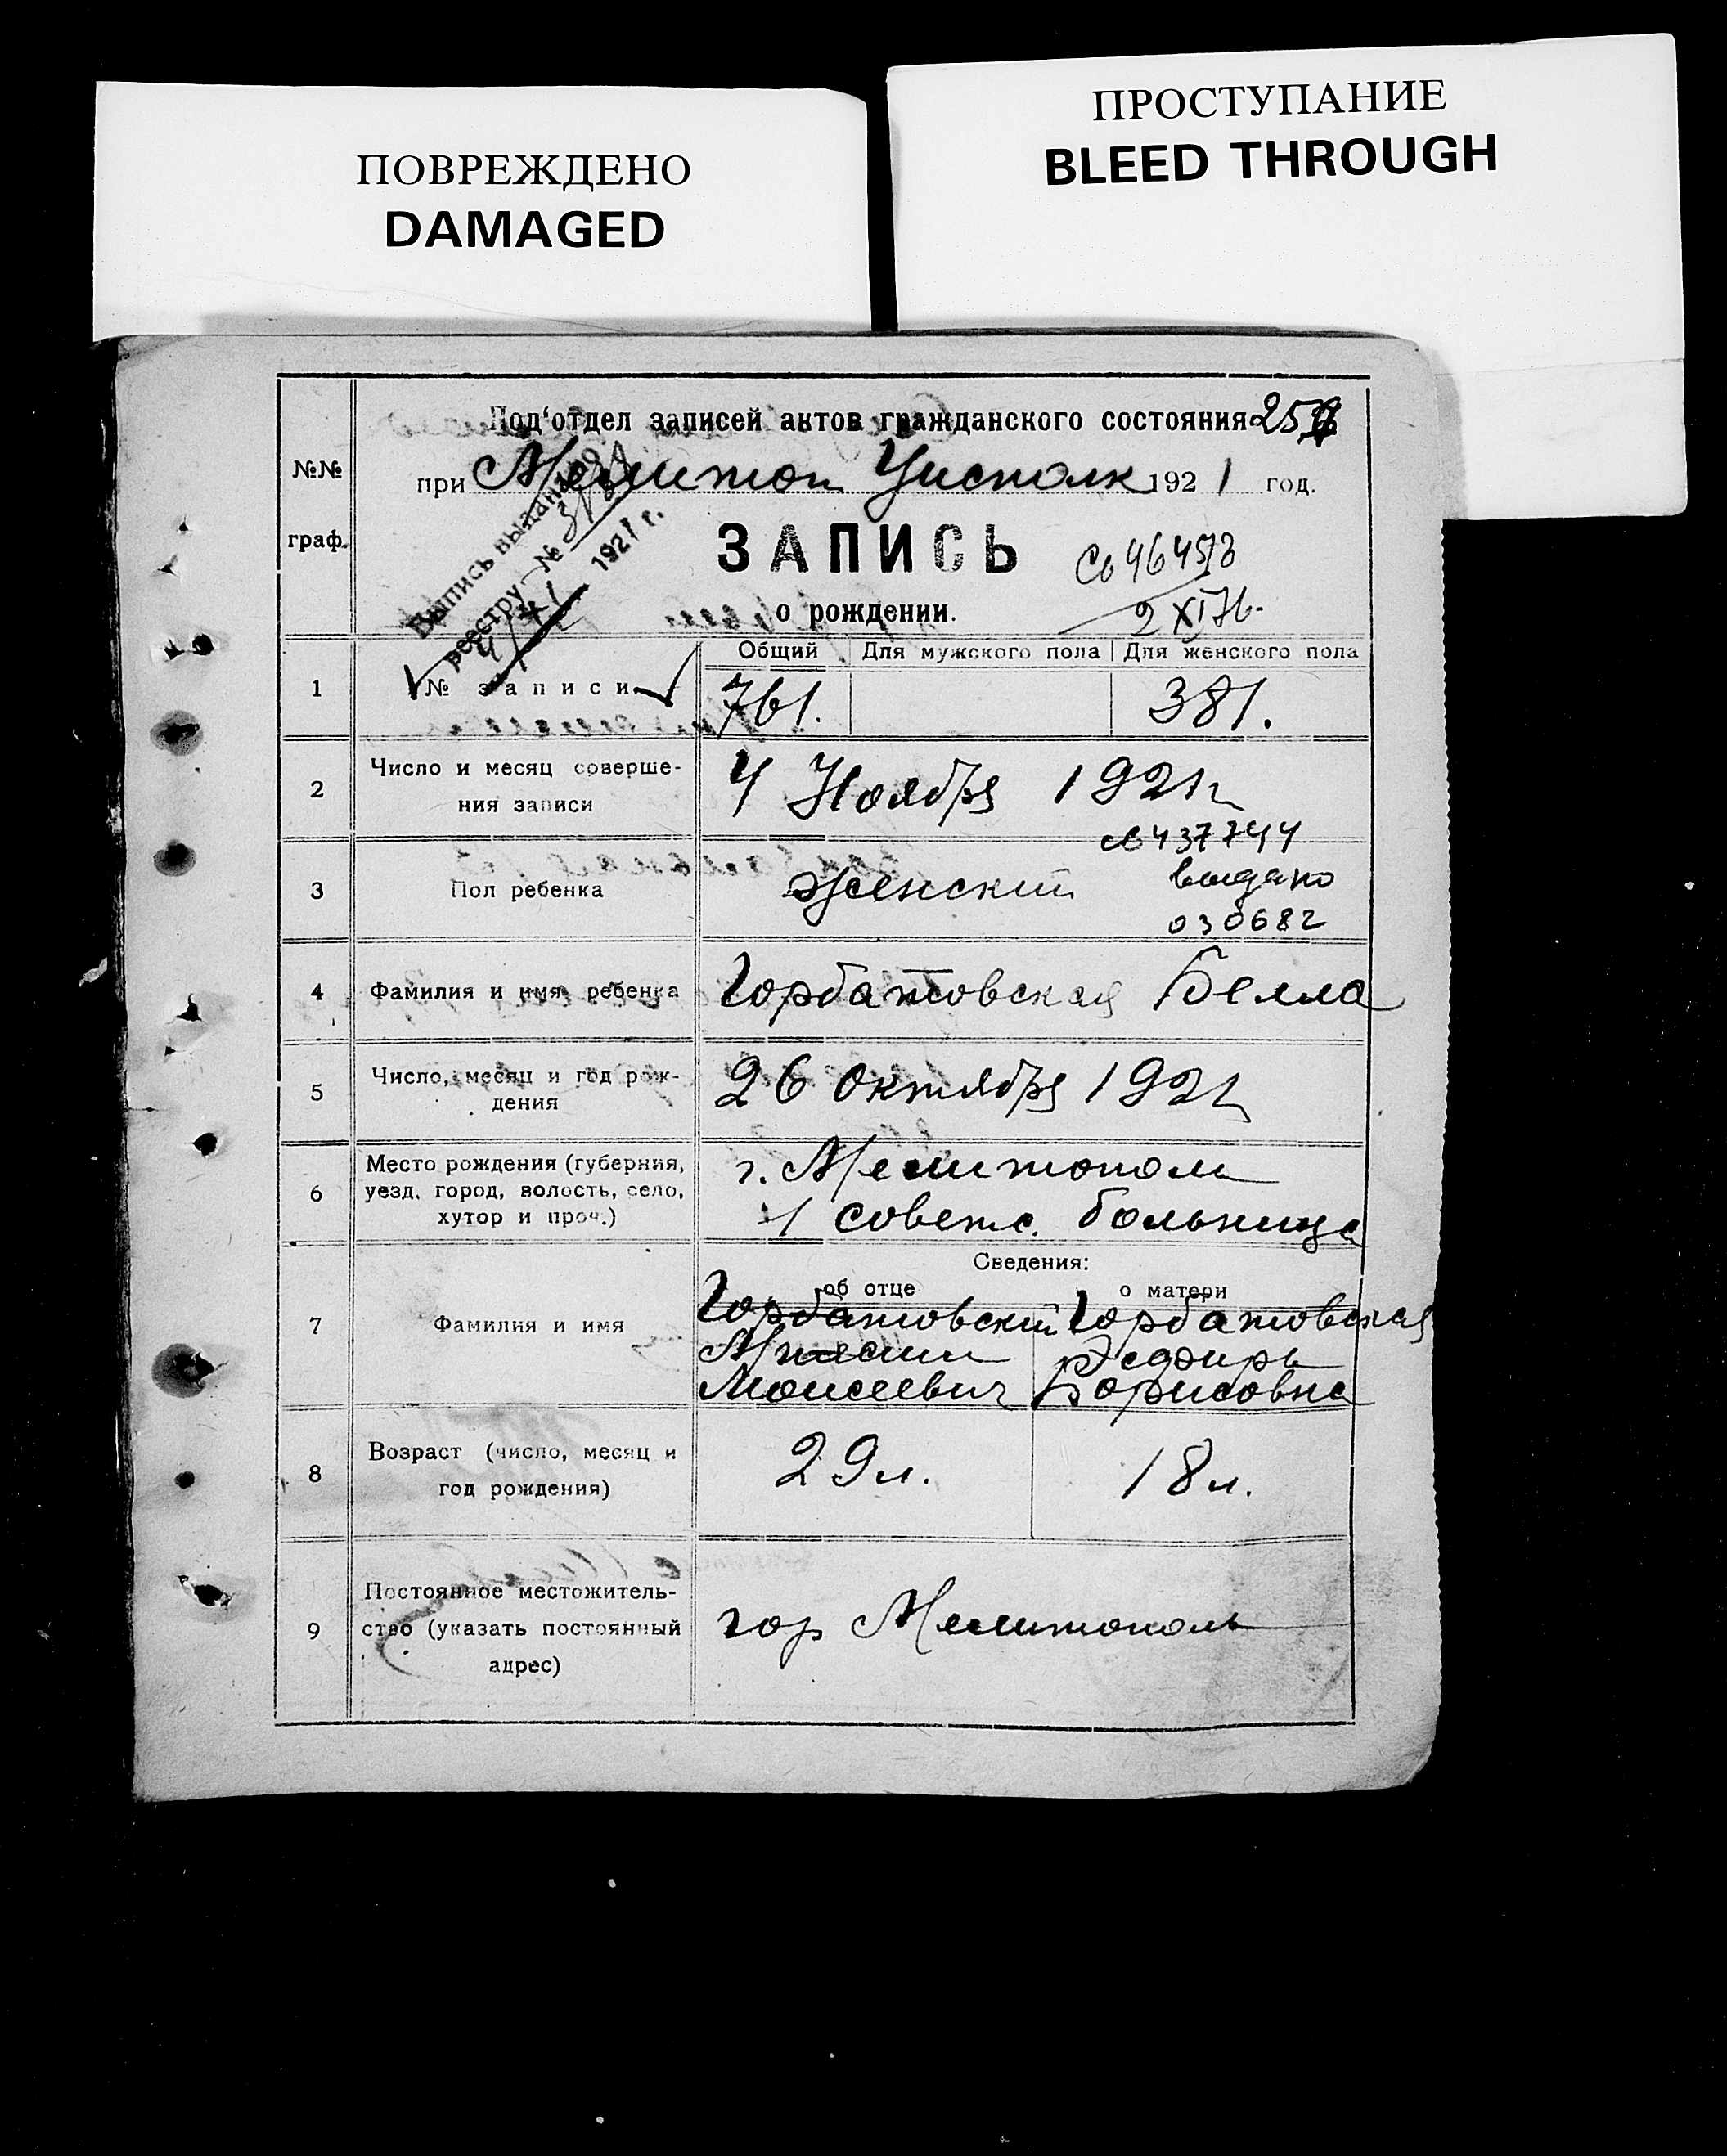 ПОВРЕЖДЕНО
DAMAGED
ПРОСТУПАНИЕ
BLEED THROUGH
Под‘отдел записей актов гражданского состояния
№№
граф.
при Мелитоп Уисполк 1921 год.
Выпись выдана по
реестру №
1921 г.
ЗАПИСЬ
о рождении.
2 XI 76
Общий Для мужского пола Для женского пола
1 № записи 761. 381.
2 Число и месяц соверше-
ния записи
4 Ноября 1921г
№ 437744
3 Пол ребенка женский выдано
030682
4 Фамилия и имя ребенка Горбатовская Белла
5 Число, месяц и год рож-
дения
26 октября 1921
6 Место рождения (губерния,
уезд, город, волость, село,
хутор и проч.)
г. Мелитополь
1 советс. больнице
Сведения:
об отце о матери
7 Фамилия и имя
Горбатовский Горбатовская
Эсфирь
Моисеевич Борисовна
8 Возраст (число, месяц и
год рождения)
29 л. 18 л.
9 Постоянное местожитель-
ство (указать постоянный
адрес)
гор Мелитополь